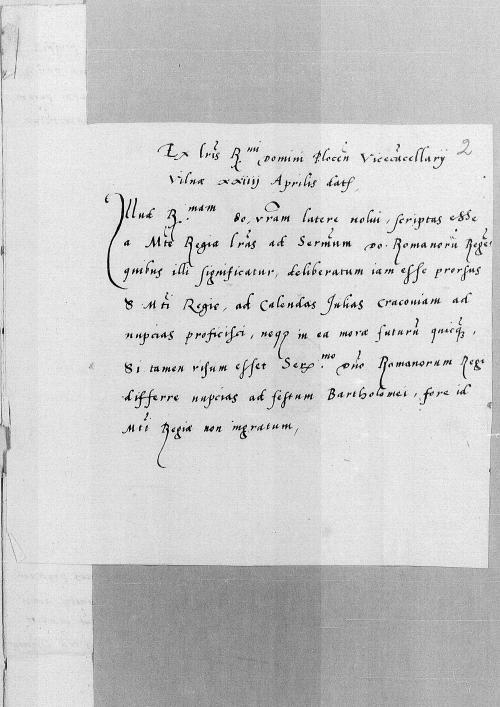 2
Ex lr̃is R.mi Domini Plocen̄ Vicecācellarij
Vilnæ xxiiij Aprilis dat̄,
Illud R.mam do. vr̃am latere nolui, scriptas esse
a Mte Regia lr̃as ad Sermum Do. Romanorū Regē
quibus illi significatur, deliberatum iam esse prorsus
S Mti Regie, ad Calendas Julias Craconiam ad
nupcias proficisci, neq3 in ea moræ futurū quicq̄,
Si tamen visum esset Ser.mo dn̄o Romanorum Regi
differre nupcias ad festum Bartholomei, fore id
Mti Regiæ non ingratum,